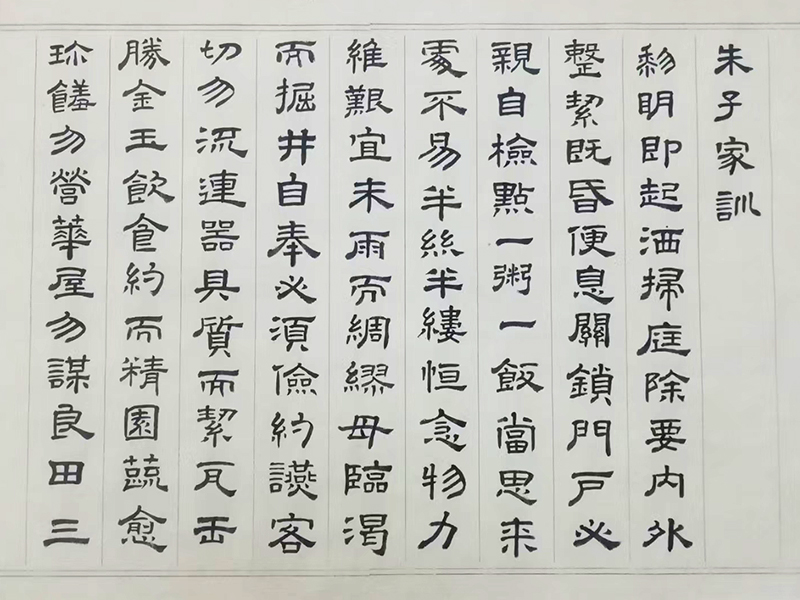 朱子家訓
黎明即起洒掃庭除要内外
整絜既昏便息關鎖門戶必
親自檢點一粥一飯當思来
處不易半絲半縷恒念物力
維艱宜未雨而綢繆毋臨渴
而掘井自奉必須儉約讌客
切勿流連器具質而絜瓦缶
勝金玉飲食約而精園蔬愈
珍饈勿營華屋勿謀良田三